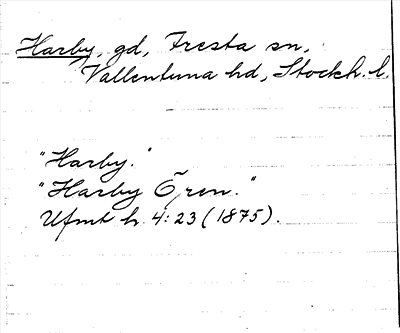 Harby, gd, Fresta sn,
Vallentuna hd, Stockh. l.
"Harby."
"Harby Ören."
Ufmt h. 4:23 (1875).